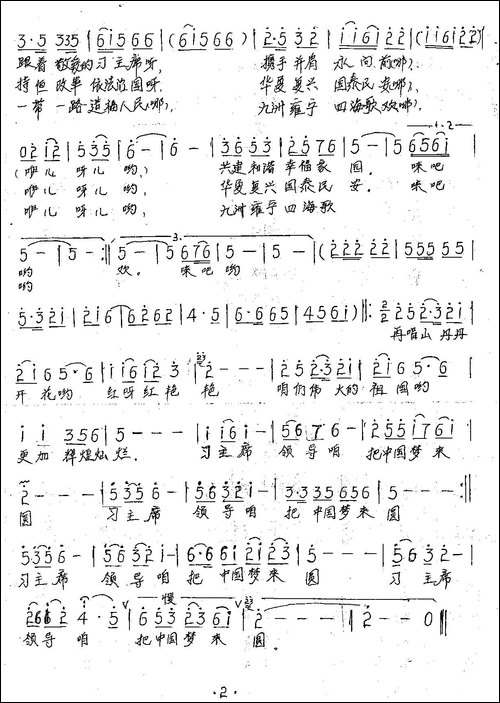 3·5 335 | 6i566 | (6i566) | 2·5 32 | ii6i 22 | (ii6i22)
跟着敬爱的习主席呀, 携手并肩 水向前哪,
持恒改革依法治国呀. 华夏复兴 国泰民安哪,
一带一路造福人民哪, 九洲雍乎 四海歌欢哪,
1·2
02 i2 | 535 | 6 - | 6 - | 3653 | 2576 | 5 - | 5 656i
(咿儿 呀儿 哟,) 共建和谐幸福家 园. 咪吧
咿儿 呀儿 哟, 华夏复兴国泰民 安. 咪吧
咿儿 呀儿 哟, 九洲雍乎四海歌
3.
5 - | 5 - :|| 5 - | 5 676 | 5 - | 5 - | (222 22 | 555 55 |
哟 欢. 咪吧 哟
哟
5·32i | 2i6 | 6262 | 4·5 | 6·665 | 456i) ||: 2/2 252·32i |
再唱山丹丹
2i65·6 | ii6i23 | 2 - - - | 252·32i | 2i65·6 |
开花哟 红呀红艳 艳 咱们伟大的祖国哟
ii 356 | 5 - - - | ii6i - | 567·6 - | 255i76i |
更加辉煌灿烂. 习主席 领导咱 把中国梦来
2 - - - | 5356 - | 5·632i - | 3·335656 | 5 - - - :||
圆 习主席 领导咱 把中国梦来 圆
5356 - | 5632i - | 6·66i2i23 | 5 - - - | 5632 - |
习主席 领导咱 把中国梦来 圆 习主席
慢
2662 4·5 | 653 236i | 2 - - - | 2 - - 0 ||
领导咱 把中国梦来 圆.
·2·